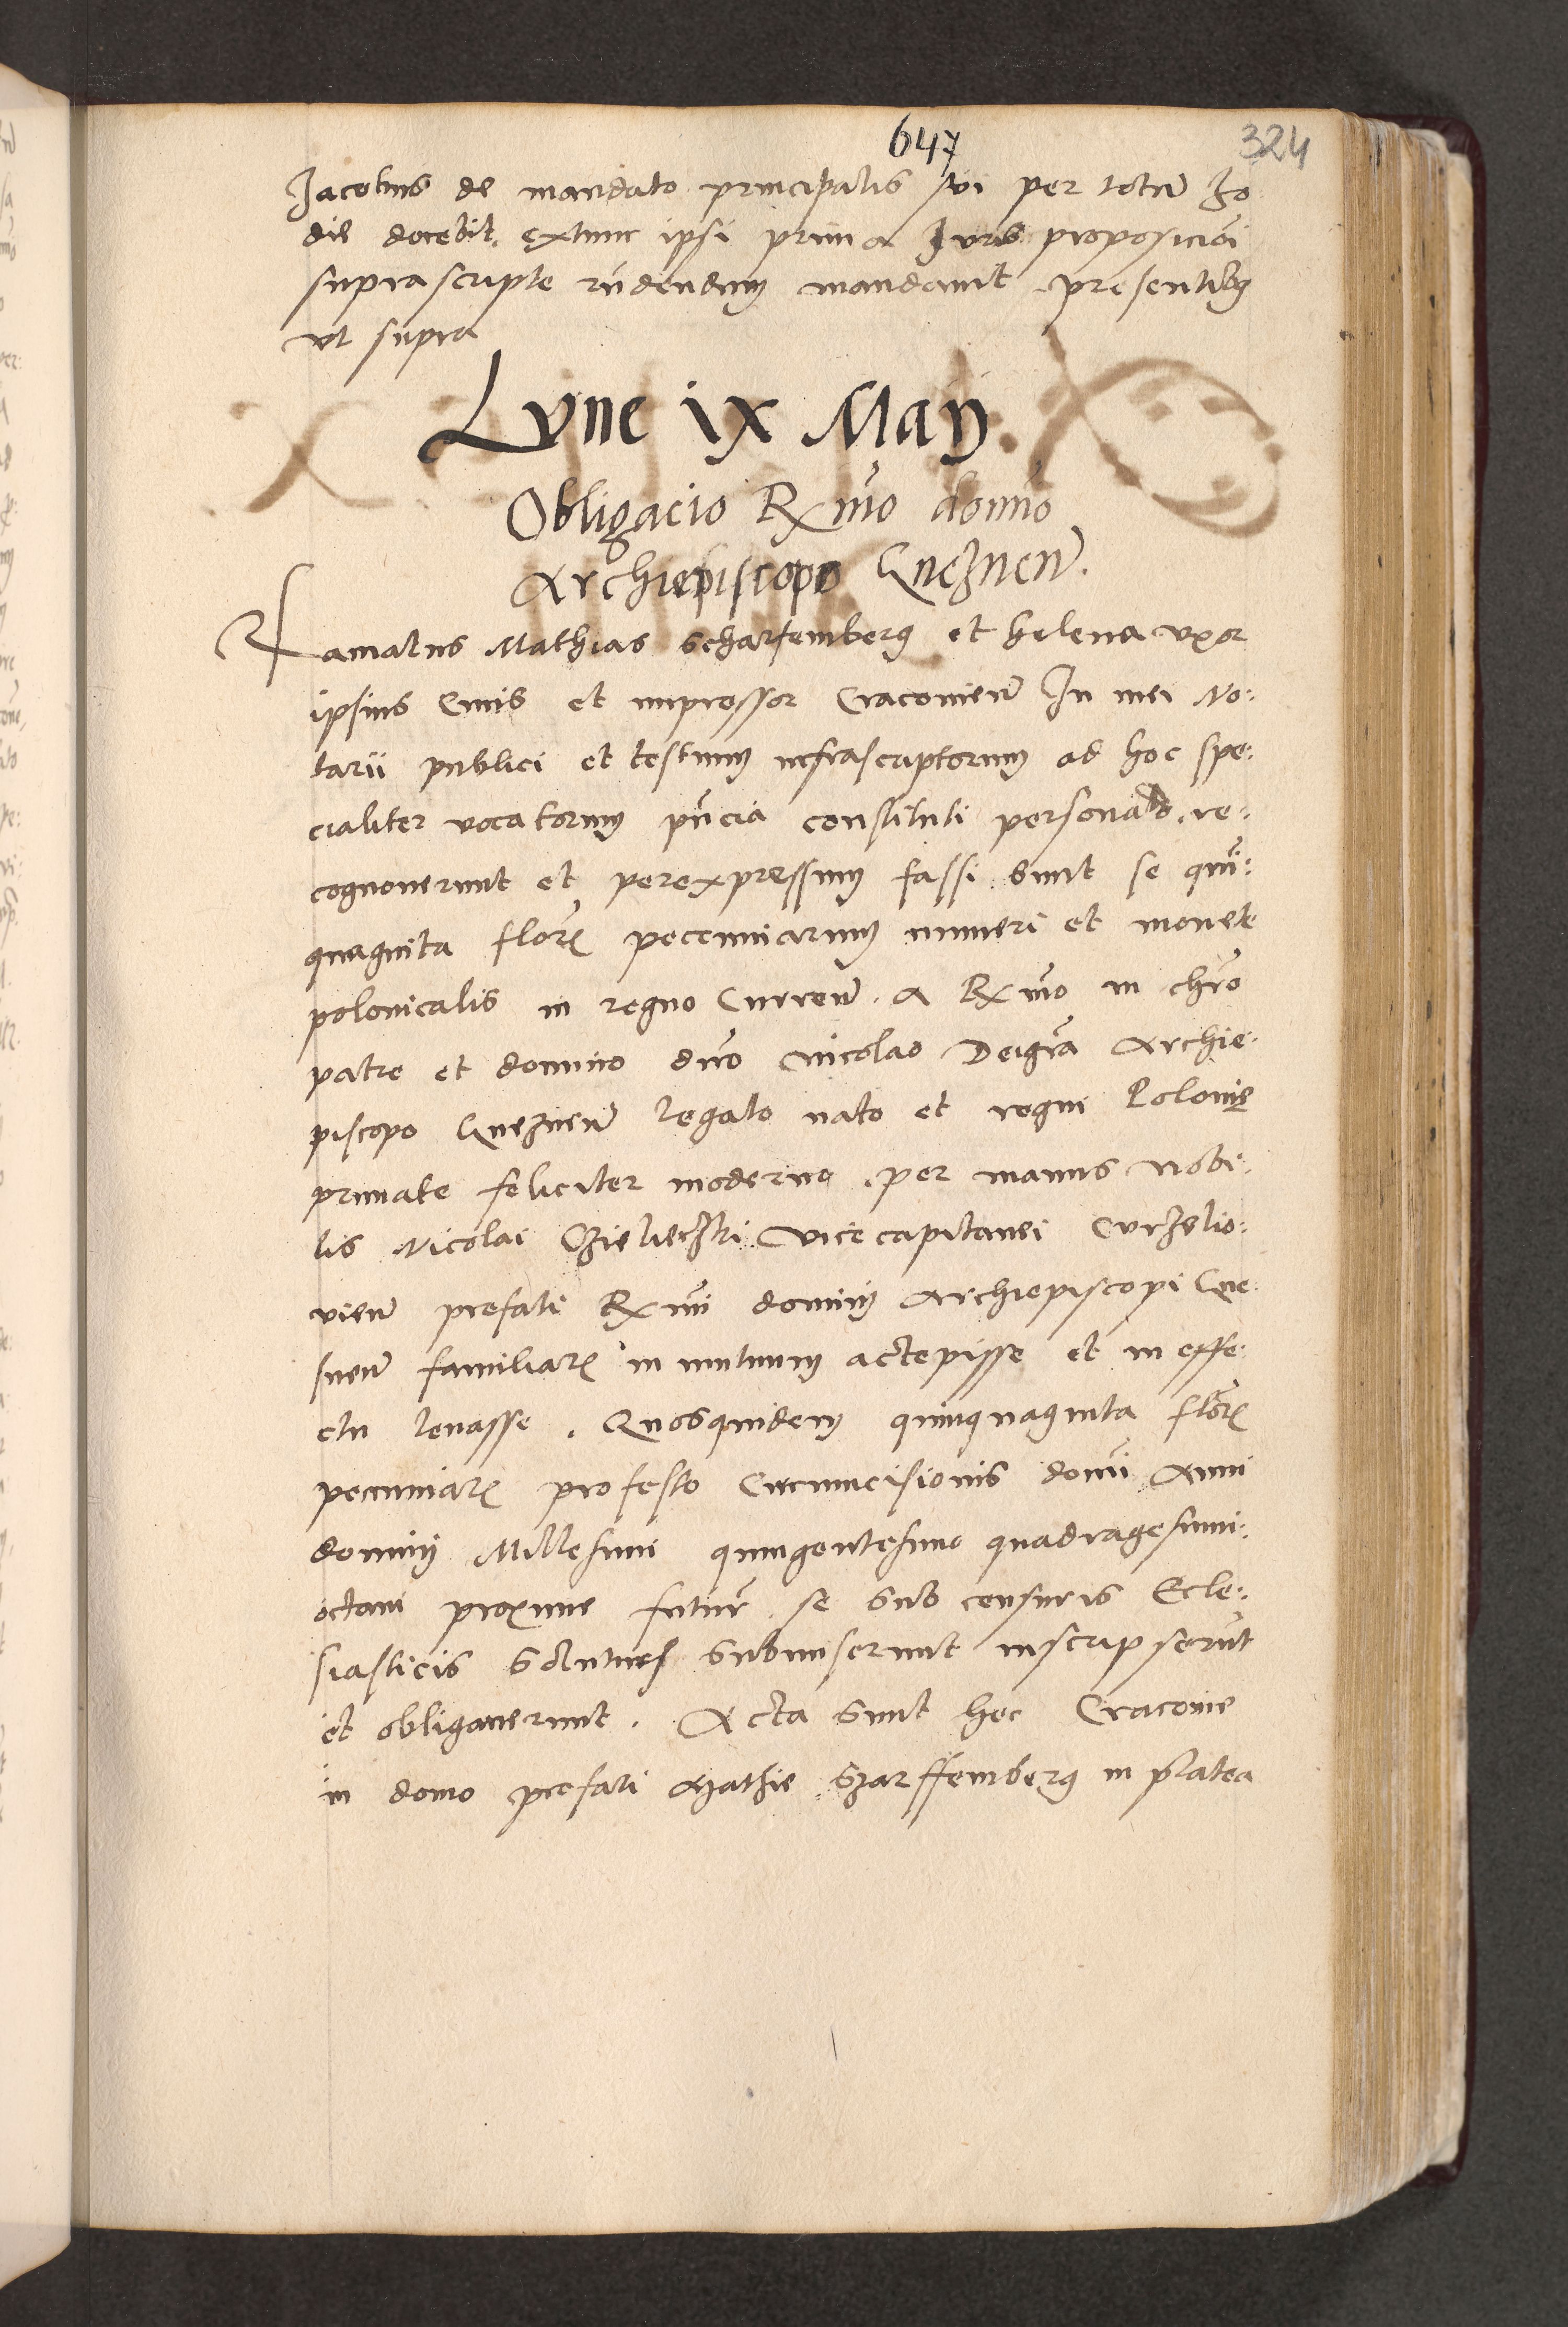 647
324
Jacobus de mandato principalis sui per totum ho
die docebit, extunc ipsi prima Juris proposicioi
suprascripte rndendum mandavit presentibus
vt supra
Lune ix Maij.
Obligacio Rxmo domno
Archiepiscopo Gneznen.
Famatus Mathias Scharfemberg et helena vxor
ipsius Civis et impressor Cracovien In mei No:
tarii publici et testium infrascriptorum ad hoc spe:
cialiter vocatorum pncia constituti personalr. re:
cognoverunt et perexpressum fassi sunt se qui:
quaginta florn pecuniarum numeri et monete
polonicalis in regno Curren. a Rxmo in chro
patre et domino dno Nicolao Deigra Archie:
piscopo Gneznen legato nato et regni Polonie
primate feliciter moderno per manus Nobi:
lis Nicolai vicecapitanei Curzelio:
vien prefati Rxmi dominij Archiepiscopi Gne
snen familiaris in mutuum accepisse et in effe:
ctu levasse. Quosquidem quinquaginta florn
pecuniarn pro festo Circumcisionis domi Anni
dominij Millesimi quingentesimo quadragesimi:
octavi proxime futur. se sub censuris Ecle:
siasticis Soluturos submiserunt inscripserunt
et obligaverunt. Acta sunt hec Cracovie
in domo prefati Mathie Szarffemberg in platea